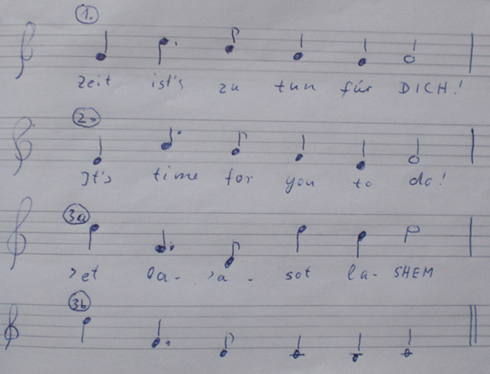 1.
Zeit ist's zu tun für DICH!
2.
It's time for you to do!
3a
>et la- >a- sot la- SHEM
3b